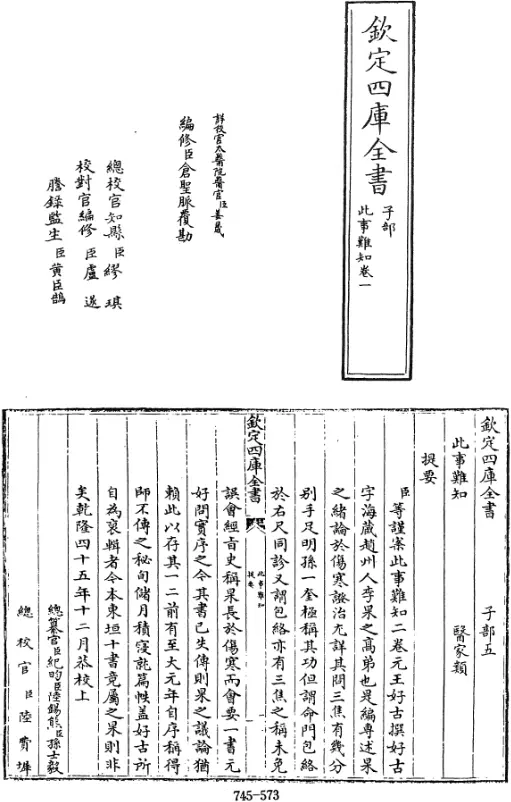 欽定四庫全書
子部
此事難知卷一
詳校官太醫院醫官臣姜晟
編修臣倉聖脈覆勘
總校官知縣臣繆琪
校對官編修臣盧遂
謄錄監生臣黃臣鵠
欽定四庫全書 子部五
此事難知 醫家類
提要
臣等謹案此事難知二卷元王好古撰好古
字海藏趙州人李杲之高弟也是編專述杲
之緒論於傷寒證治尤詳其問三焦有幾分
別手足明孫一奎極稱其功但謂命門包絡
於右尺同診又謂包絡亦有三焦之稱未免
欽定四庫全書
此事難知
提要
一
誤會經旨史稱杲長於傷寒而會要一書元
好問實序之今其書已失傳則杲之議論猶
賴此以存其一二前有至大元年自序稱得
師不傳之秘旬儲月積寖就篇帙蓋好古所
自為裒輯者今本東垣十書竟屬之杲則非
矣乾隆四十五年十二月恭校上
總纂官臣紀昀臣陸錫熊臣孫士毅
總校官臣陸費墀
745-573